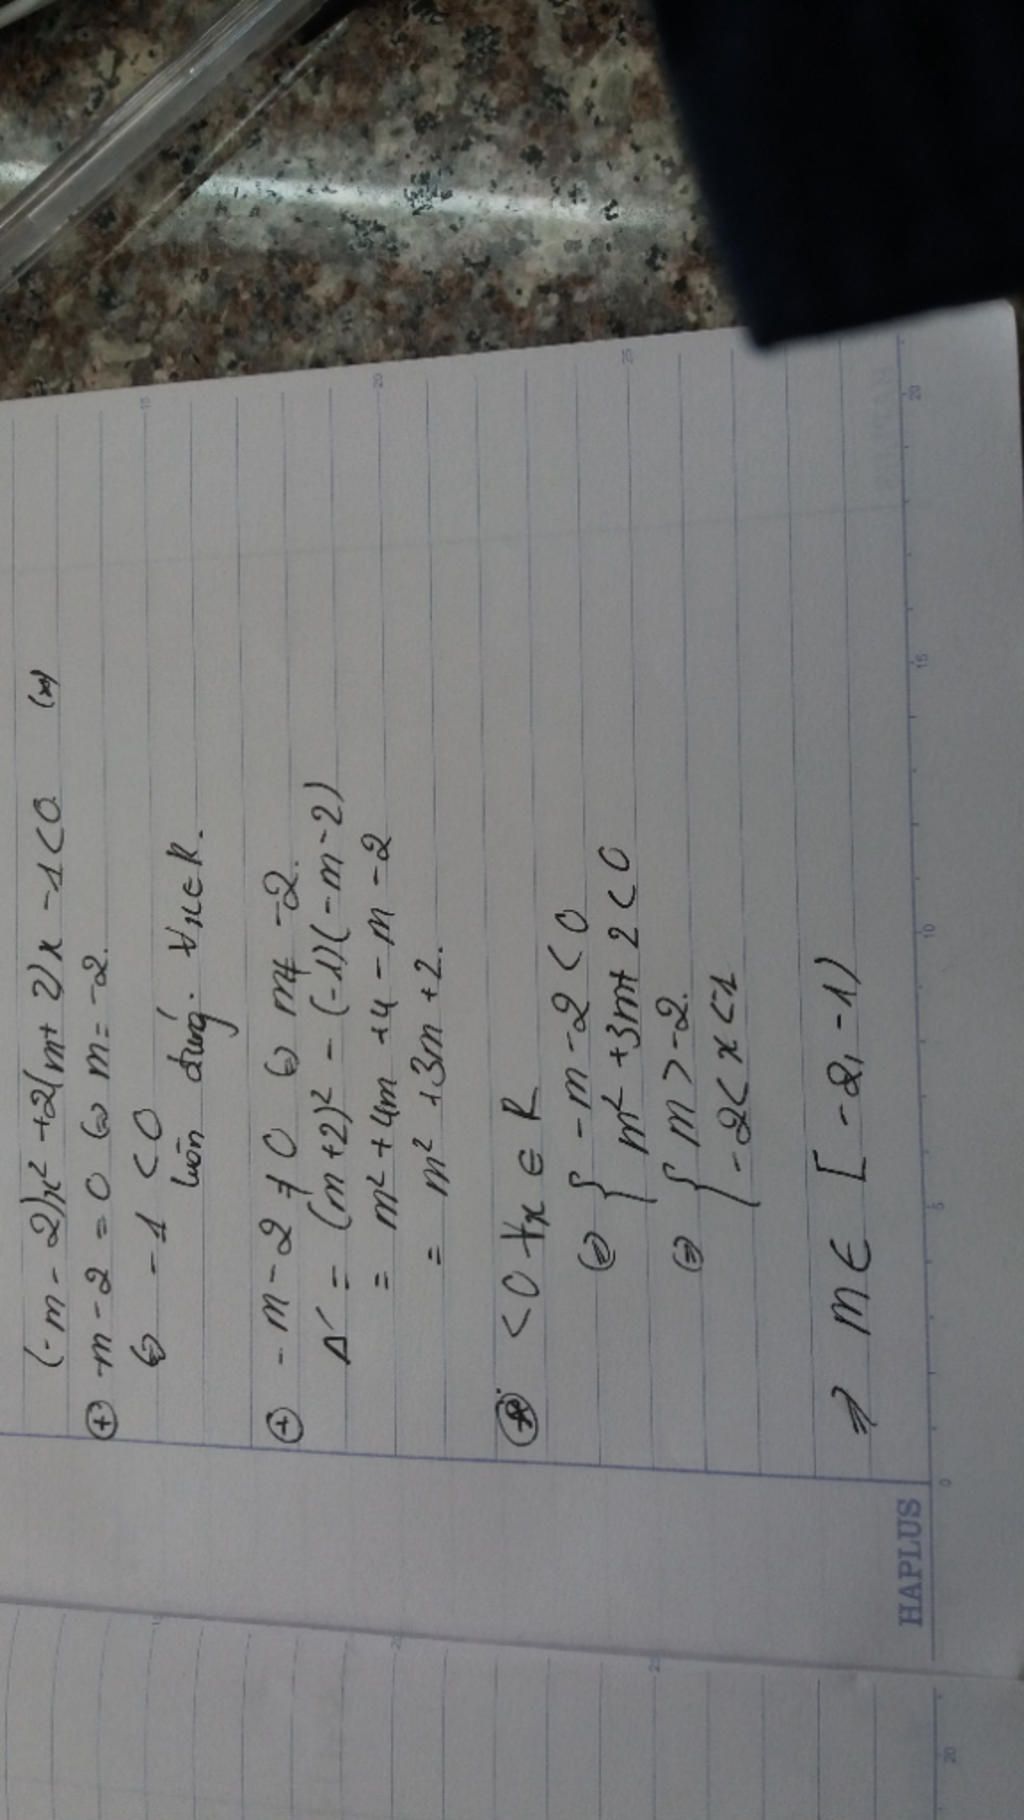 (-m-2)x² +2(m+2)x -1<0 (*)
⊕ -m-2=0 ⇔ m=-2.
⇔ -1 <0
luôn đúng. ∀x∈R.
⊕ -m-2 ≠ 0 ⇔ m≠ -2.
Δ' = (m+2)² - (-1)(-m-2)
= m² +4m +4 - m -2
= m² +3m +2.
(*) <0 ∀x ∈ R
⇔ { -m-2 < 0
m² +3m+2 < 0
⇔ { m > -2.
-2 < x < 1
⇒ m ∈ [-2, -1)
HAPLUS
0
5
10
15
20
15
20
25
20